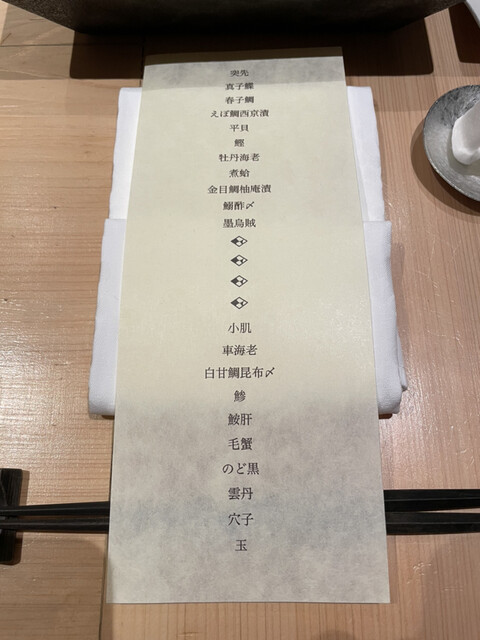 突先
真子鰈
春子鯛
えぼ鯛西京漬
平貝
鰹
牡丹海老
煮蛤
金目鯛柚庵漬
鰯酢〆
墨烏賊
小肌
車海老
白甘鯛昆布〆
鯵
鮟肝
毛蟹
のど黒
雲丹
穴子
玉